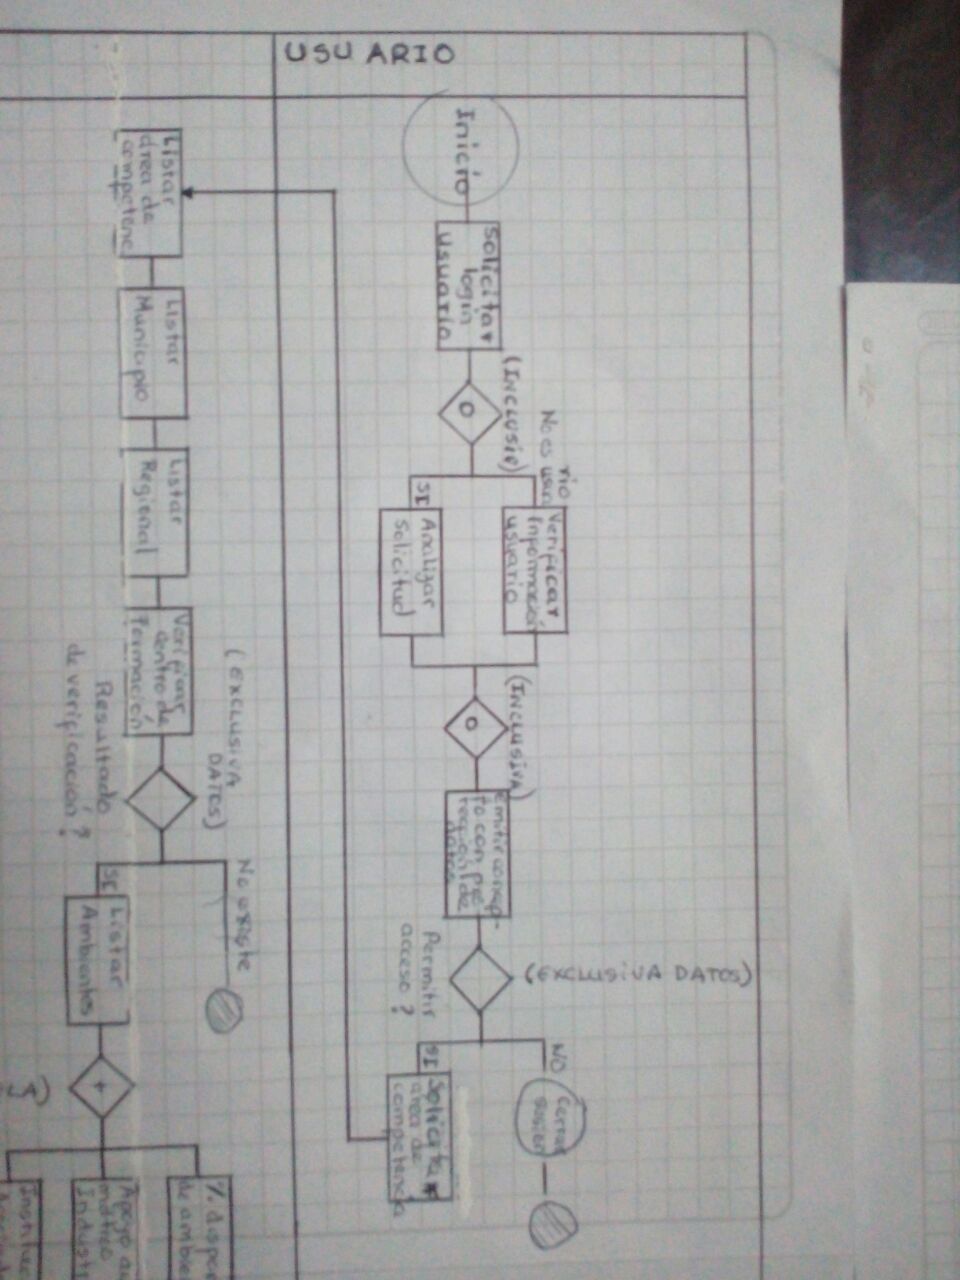 USUARIO
Inicio
Solicitar
login
usuario
(INCLUSIV)
No es usua
rio
SI
Verificar
Información
usuario
Analizar
Solicitud
(INCLUSIVA)
Emitir concep-
to con
rección de
datos
Permitir
acceso?
(EXCLUSIVA DATOS)
NO
Cerrar
SI
Solicitar
area de
competencia
Listar
área de
competenc
Listar
Municipio
Listar
Regional
Verificar
centro de
Formación
(EXCLUSIVA
DATOS)
Resultado
de verificación?
No existe
SI
Listar
Ambientes
+
% dispon
de ambien
Apoyo a
Indust
Instruc